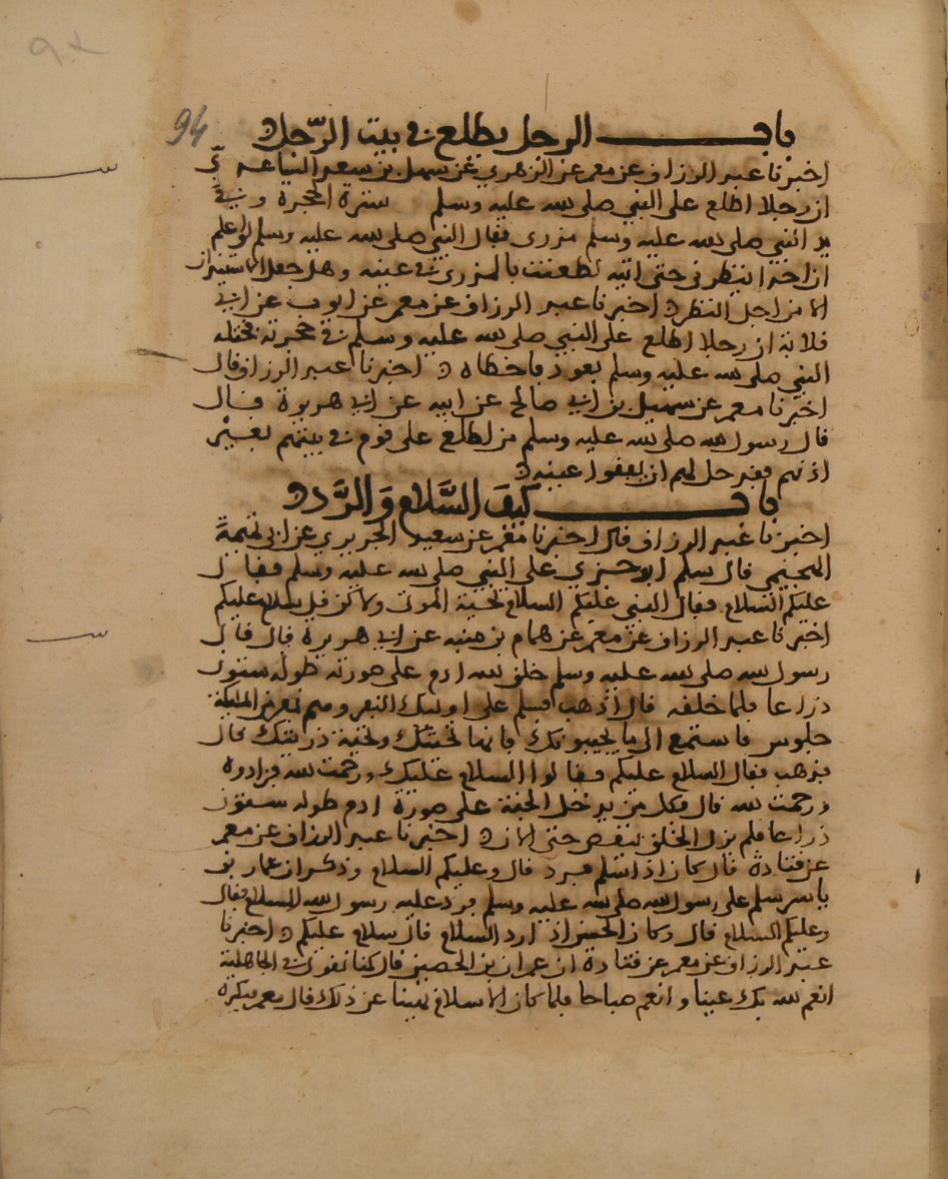 94
باب الرجل يطلع في بيت الرجل
اخبرنا عبد الرزاق عن معمر عن الزهري عن سهل بن سعد الساعدي
ان رجلا اطلع على النبي صلى الله عليه وسلم سترة الحجرة وفي
يد النبي صلى الله عليه وسلم مدرى فقال النبي صلى الله عليه وسلم لو اعلم
ان احدا ينظرني حتى اتيه لطعنت بالمدرى في عينه وهل جعل الاستيذان
الا من اجل النظر اخبرنا عبد الرزاق عن معمر عن ايوب عن ابي
قلابة ان رجلا اطلع على النبي صلى الله عليه وسلم في حجرته فختله
النبي صلى الله عليه وسلم بعود فاخطاه اخبرنا عبد الرزاق قال
اخبرنا معمر عن سهيل بن ابي صالح عن ابيه عن ابي هريرة قال
قال رسول الله صلى الله عليه وسلم من اطلع على قوم في بيتهم بغير
اذنهم فقد حل لهم ان يفقوا عينه
باب كيف السلام والرد
اخبرنا عبد الرزاق قال اخبرنا معمر عن سعيد الجريري عن ابي تميمة
الهجيمي قال سلم ابو جري على النبي صلى الله عليه وسلم فقال
عليكم السلام فقال النبي عليكم السلام تحية الموتى ولاكن قل سلام عليكم
اخبرنا عبد الرزاق عن معمر عن همام بن منبه عن ابي هريرة قال قال
رسول الله صلى الله عليه وسلم خلق الله ادم على صورته طوله ستون
ذراعا فلما خلقه قال اذهب فسلم على اوليك النفر وهم نفر من المليكة
جلوس فاستمع الى ما يجيبونك فانها تحيتك وتحية ذريتك قال
فذهب فقال السلام عليكم فقالوا السلام عليك ورحمت الله فزادوه
ورحمت الله قال فكل من يدخل الجنة على صورة ادم طوله ستون
ذراعا فلم يزل الخلق ينقص حتى الان اخبرنا عبد الرزاق عن معمر
عن قتادة قال كان اذا سلم فرد قال وعليكم السلام وذكر ان عمار بن
ياسر سلم على رسول الله صلى الله عليه وسلم فرد عليه رسول الله السلام فقال
وعليكم السلام قال وكان الحسن اذا رد السلام قال سلام عليكم اخبرنا
عبد الرزاق عن معمر عن قتادة ان عمران بن الحصين قال كنا نقول في الجاهلية
انعم الله بك عينا وانعم صباحا فلما كان الاسلام نهينا عن ذلك قال معمر فيكره